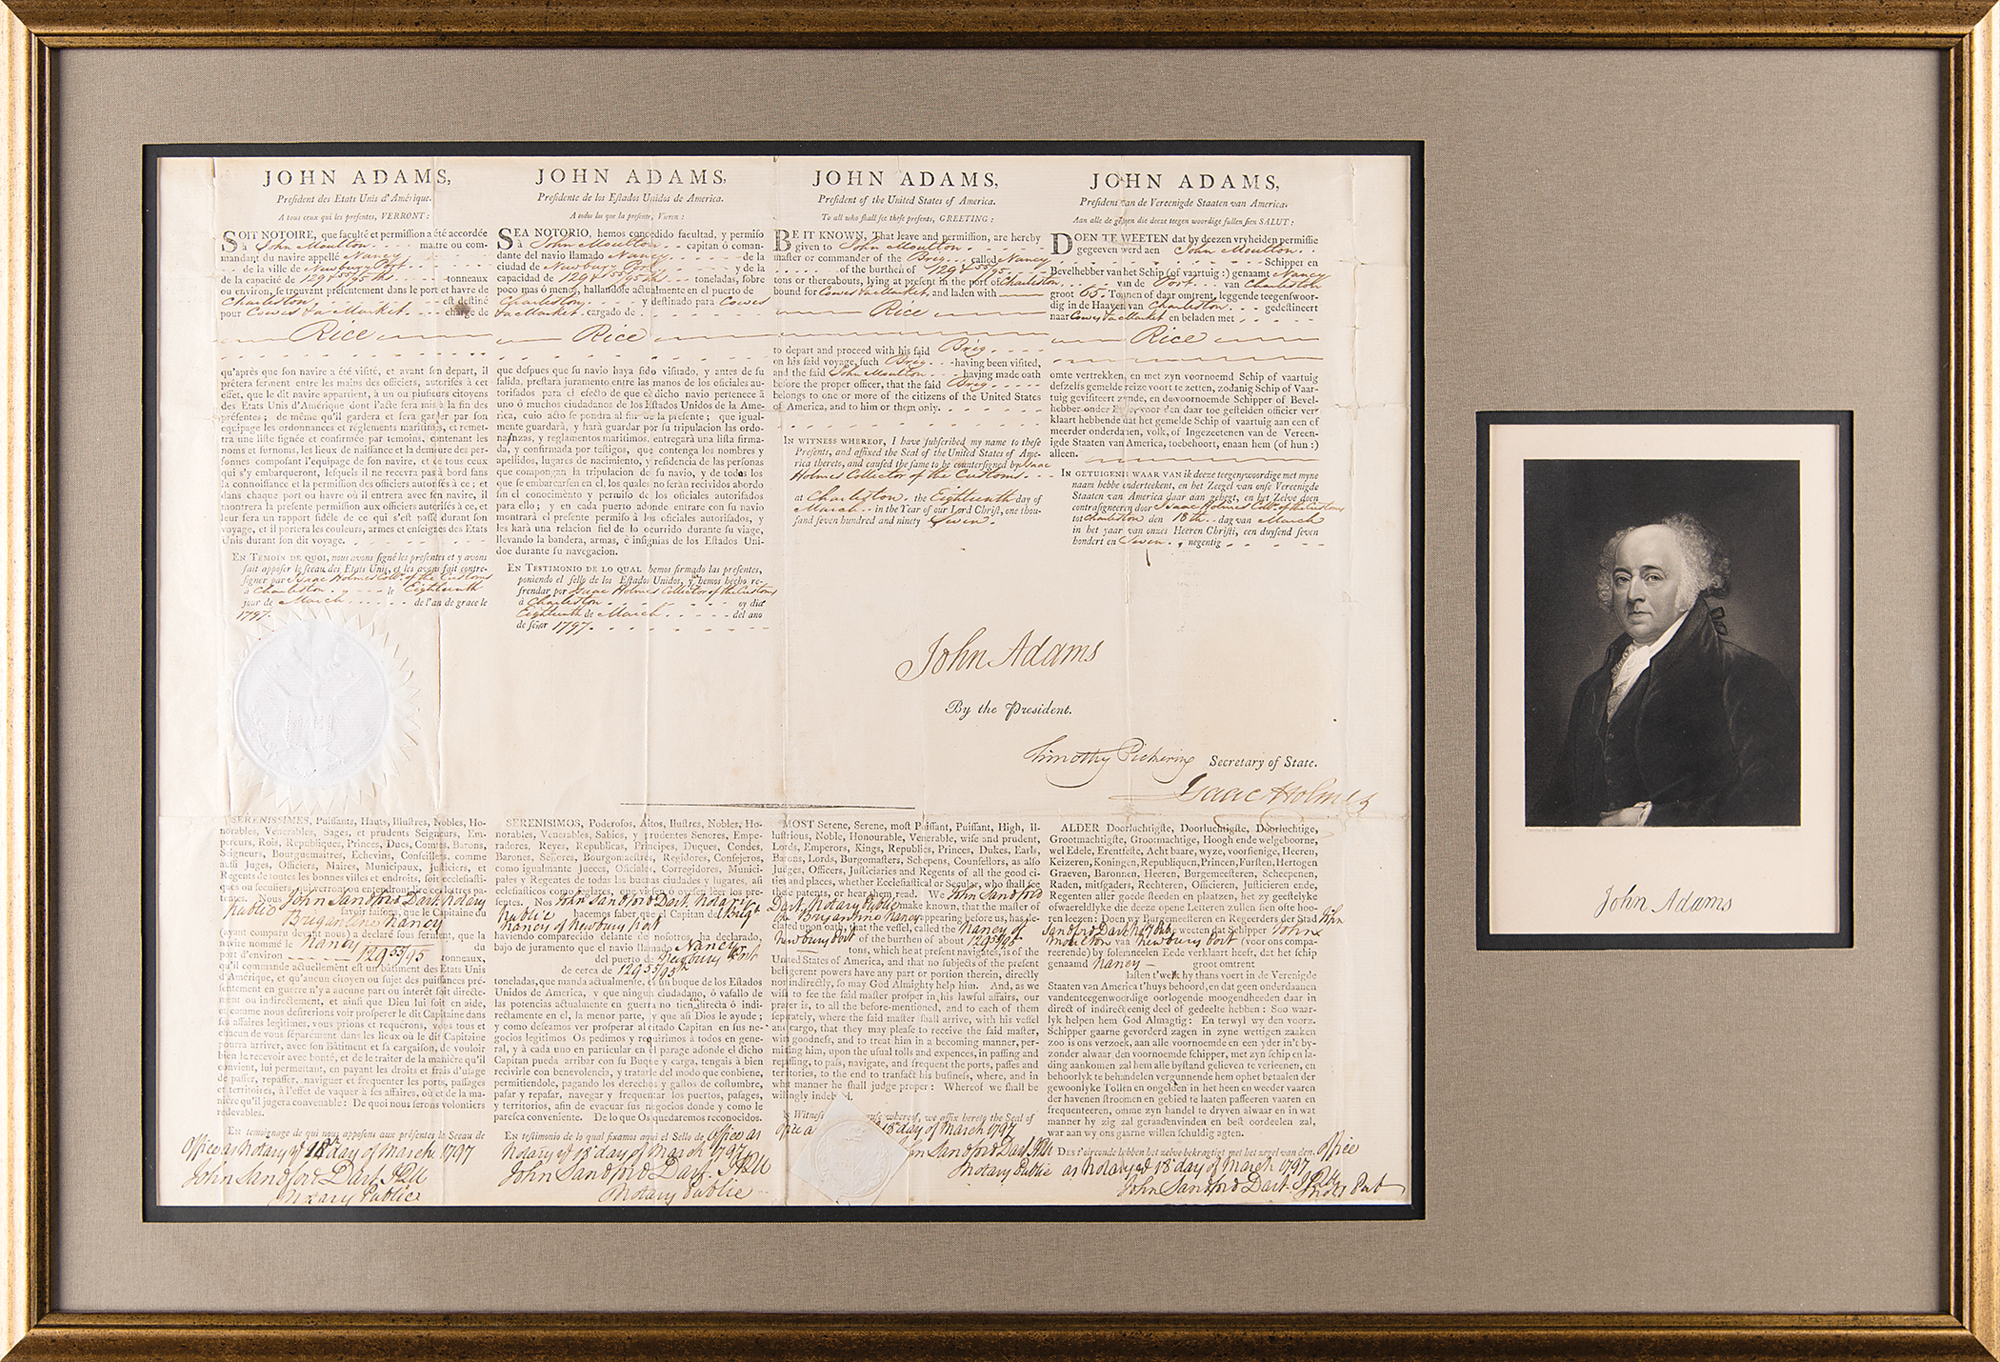 JOHN ADAMS,
President des Etats Unis d'Amérique.
A tous ceux qui les presentes, VERRONT:
SOIT NOTOIRE, que faculté et permission a été accordée
à John Moulton maitre ou com-
mandant du navire appellé Nancy
de la ville de Newbury Port
de la capacité de 129 & 55/95ths tonneaux
ou environ, se trouvant présentement dans le port et havre de
Charleston est destiné
pour Cowes & a Market chargé de
Rice
qu'après que son navire a été visité, et avant son depart, il
prêtera serment entre les mains des officiers, autorisés à cet
effet, que le dit navire appartient, à un ou plusieurs citoyens
des Etats Unis d'Amérique dont l'acte sera mis à la fin des
présentes; de même qu'il gardera et fera garder par son
equipage les ordonnances et règlements maritimes, et remet-
tra une liste signée et confirmée par temoins, contenant les
noms et surnoms, les lieux de naissance et la demeure des per-
sonnes composant l'equipage de son navire, et de tous ceux
qui s'y embarqueront, lesquels il ne recevra pas à bord sans
la connoissance et la permission des officiers autorisés à ce; et
dans chaque port ou havre où il entrera avec son navire, il
montrera la présente permission aux officiers autorisés à ce, et
leur fera un rapport fidéle de ce qui s'est passé durant son
voyage, et il portera les couleurs, armes et enseignes des Etats
Unis durant son dit voyage.
EN TEMOIN DE QUOI, nous avons signé les presentes et y avons
fait apposer le sceau des Etats Unis, et les avons fait contre-
signer par Isaac Holmes Collr. of the Customs
à Charleston le Eighteenth
jour de March de l'an de grace le
1797.
JOHN ADAMS,
Presidente de los Estados Unidos de America.
A todos los que la presente, Vieren:
SEA NOTORIO, hemos concedido facultad, y permiso
à John Moulton capitan ó coman-
dante del navio llamado Nancy de la
ciudad de Newbury Port y de la
capacidad de 129 & 55/95ths toneladas, sobre
poco mas ó menos, hallandose actualmente en el puerto de
Charleston y destinado para Cowes
& a Market cargado de
Rice
que despues que su navio haya sido visitado, y antes de su
salida, prestara juramento entre las manos de los oficiales au-
torisados para el efecto de que el dicho navio pertenece à
uno ó muchos ciudadanos de los Estados Unidos de la Ame-
rica, cuio acto se pondra al fin de la presente; que igual-
mente guardará, y hará guardar por su tripulation las ordo-
nanzas, y reglamentos maritimos, entregará una lista firma-
da, y confirmada por testigos, que contenga los nombres y
apellidos, lugares de nacimiento, y residencia de las personas
que compongan la tripulation de su navio, y de todos los
que se embarcasen en el, los quales no serán recividos abordo
sin el conocimiento y permiso de los oficiales autorisados
para ello; y en cada puerto adonde entrare con su navio
montrará el presente permiso à los oficiales autorisados, y
les hará una relacion fiel de lo ocurrido durante su viage,
llevando la bandera, armas, è insignias de los Estados Uni-
doe durante su navegacion.
EN TESTIMONIO DE LO QUAL hemos firmado las presentes,
poniendo el sello de los Estados Unidos, y hemos hecho re-
frendar por Isaac Holmes Collector of the Customs
à Charleston oy dia
Eighteenth de March del ano
de señor 1797.
JOHN ADAMS,
President of the United States of America.
To all who shall see these presents, GREETING:
BE IT KNOWN, That leave and permission, are hereby
given to John Moulton
master or commander of the Brig called Nancy
of the burthen of 129 & 55/95
tons or thereabouts, lying at present in the port of Charleston
bound for Cowes & a Market, and laden with
Rice
to depart and proceed with his said Brig
on his said voyage, such Brig having been visited,
and the said John Moulton having made oath
before the proper officer, that the said Brig
belongs to one or more of the citizens of the United States
of America, and to him or them only.
IN WITNESS WHEREOF, I have subscribed my name to these
Presents, and affixed the Seal of the United States of Ame-
rica thereto, and caused the same to be countersigned by Isaac
Holmes Collector of the Customs
at Charleston the Eighteenth day of
March in the Year of our Lord Christ, one thou-
sand seven hundred and ninety Seven
JOHN ADAMS,
President van de Vereenigde Staaten van America.
Aan alle de geenen die deeze teegen woordige sullen sien SALUT:
DOEN TE WEETEN dat by deezen vryheiden permissie
gegeeven werd aen John Moulton
Schipper en
Bevelhebber van het Schip (of vaartuig:) genaamt Nancy
van de Port van Charleston
groot 65 Tonnen of daar omtrent, leggende teegenswoor-
dig in de Haaven van Charleston gedestineert
naar Cowes & a Market en beladen met
Rice
omte vertrekken, en met zyn voornoemd Schip of vaartuig
deszelfs gemelde reize voort te zetten, zodanig Schip of Vaar-
tuig gevisiteert zynde, en de voornoemde Schipper of Bevel-
hebber onder Eed, voor den daar toe gestelden officier ver
klaart hebbende dat het gemelde Schip of vaartuig aan een of
meerder onderdaen, volk, of Ingezeetenen van de Vereen-
igde Staaten van America, toebehoort, enaan hem (of hun:)
alleen.
IN GETUIGENIS WAAR VAN ik deeze teegenswoordige met myne
naam hebbe onderteekent, en het Zeegel van onse Vereenigde
Staaten van America daar aan gehegt, en het Zelve doen
contrasigneeren door Isaac Holmes Collr. of the Customs
tot Charleston den 18th dag van March
in het jaar van onzes Heeren Christi, een duysend seven
hondert en Seven negentig
John Adams
By the President.
Timothy Pickering Secretary of State.
Isaac Holmes
SERENISSIMES, Puissants, Hauts, Illustres, Nobles, Ho-
norables, Venerables, Sages, et prudents Seigneurs, Em-
pereurs, Rois, Republiques, Princes, Ducs, Comtes, Barons,
Seigneurs, Bourguemaitres, Echevins, Conseillers, comme
aussi Juges, Officiers, Maires, Municipaux, Justiciers, et
Regents de toutes les bonnes villes et endroits, soit ecclesiasti-
ques ou seculiers, qui verront ou entendront lire ces lettres pa-
tentes. Nous John Sandford Dart Notary
Public savoir faisons, que le Capitaine du
Brigantine Nancy
(ayant comparu devant nous) a declaré sous serment, que la
navire nommé le Nancy du
port d'environ 129 55/95 tonneaux,
qu'il commande actuellement est un bâtiment des Etats Unis
d'Amérique, et qu'aucun citoyen ou sujet des puissances pré-
sentement en guerre n'y a aucune part ou interêt soit directe-
ment ou indirectement, et ainsi que Dieu lui soit en aide,
et comme nous desirerions voir prosperer le dit Capitaine dans
ses affaires legitimes, vous prions et requerons, vous tous et
chacun de vous séparément dans les lieux où le dit Capitaine
pourra arriver, avec son Bâtiment et sa cargaison, de vouloir
bien le recevoir avec bonté, et de le traiter de la manière qu'il
convient, lui permettant, en payant les droits et frais d'usage
de passer, repasser, naviguer et frequenter les ports, passages
et territoires, à l'effet de vaquer à ses affaires, où et de la ma-
nière qu'il jugera convenable: De quoi nous serons volontiers
redevables.
En temoignage de qui nous apposons aux présentes le Sceau de
Office as Notary yd 18th day of March 1797
John Sandford Dart
Notary Public
SERENISIMOS, Poderosos, Altos, Ilustres, Nobles, Ho-
norables, Venerables, Sabios, y prudentes Senores, Empe-
radores, Reyes, Republicas, Principes, Duques, Condes,
Barones, Señores, Bourgomaestres, Regidores, Consejeros,
como igualmante Jueces, Oficiales, Corregidores, Munici-
pales y Regentes de todas las buenas ciudades y lugares, asi
eclesiasticos como seglares, que viesen ó oyesen leer los pre-
sentes. Nos John Sandford Dart Notary
Public hacemos saber, que el Capitan del Brigt
Nancy of Newbury Port
haviendo comparecido delante de nosotros, ha declarado,
bajo de juramento que el navio llamado Nancy
del puerto de Newbury Port
de cerca de 129 55/95th
toneladas, que manda actualmente, es un buque de los Estados
Unidos de America, y que ningun ciudadano, ó vasallo de
las potencias actualmente en guerra no tien directa ó indi-
rectamente en el, la menor parte, y que asi Dios le ayude;
y como deseamos ver prosperar al citado Capitan en sus ne-
gocios legitimos Os pedimos y requirimos à todos en gene-
ral, y à cada uno en particular en el parage adonde el dicho
Capitan pueda arribar con su Buque y carga, tengais à bien
recivirle con benevolencia, y tratarle del modo que conbiene,
permitiendole, pagando los derechos y gastos de costumbre,
pasar y repasar, navegar y frequentar los puertos, pasages,
y territorios, afin de evacuar sus negocios donde y como le
paresca conveniente. De lo que Os quedaremos reconocidos.
En testimonio de lo qual fixamos aqui el Sello de Office as
Notary yd 18 day of March 1797
John Sandford Dart
Notary Public
MOST Serene, Serene, most Puissant, Puissant, High, Il-
lustrious, Noble, Honourable, Venerable, wise and prudent,
Lords, Emperors, Kings, Republics, Princes, Dukes, Earls,
Barons, Lords, Burgomasters, Schepens, Counsellors, as also
Judges, Officers, Justiciaries and Regents of all the good ci-
ties and places, whether Ecclesiastical or Secular, who shall see
these patents, or hear them read. We John Sandford
Dart Notary Public make known, that the master of
the Brigantine Nancy appearing before us, has de-
clared upon oath, that the vessel, called the Nancy of
Newbury Port of the burthen of about 129 55/95
tons, which he at present navigates, is of the
United States of America, and that no subjects of the present
belligerent powers have any part or portion therein, directly
nor indirectly, so may God Almighty help him. And, as we
wish to see the said master prosper in his lawful affairs, our
prayer is, to all the before-mentioned, and to each of them
separately, where the said master shall arrive, with his vessel
and cargo, that they may please to receive the said master,
with goodness, and to treat him in a becoming manner, per-
mitting him, upon the usual tolls and expences, in passing and
repassing, to pass, navigate, and frequent the ports, passes and
territories, to the end to transact his business, where, and in
what manner he shall judge proper: Whereof we shall be
willingly indebted.
In Witness whereof, we affix hereto the Seal of
Office a 18 day of March 1797
John Sandford Dart
Notary Public
ALDER Doorluchtigste, Doorluchtigste, Doorluchtige,
Grootmachtigste, Grootmachtige, Hoogh ende welgeboorne,
wel Edele, Erentfeste, Acht baare, wyze, voorsienige, Heeren,
Keizeren, Koningen, Republiquen, Princen, Fursten, Hertogen
Graeven, Baronnen, Heeren, Burgemeesteren, Scheepenen,
Raden, mitsgaders, Rechteren, Officieren, Justicieren ende,
Regenten aller goede steeden en plaatzen, het zy geestelyke
of waereldlyke die deeze opene Letteren zullen sien ofte hoo-
ren leezen: Doen wy Burgemeesteren en Regeerders der Stad John
Sandford Dart Notary te weeten dat Schipper John
Moulton van Newbury Port (voor ons compa-
reerende) by solemneelen Eede verklaart heeft, dat het schip
genaamd Nancy groot omtrent
lasten t'welk hy thans voert in de Verenigde
Staaten van America t'huys behoord, en dat geene onderdaanen
vandenteegenwoordige oorlogende moogendheeden daar in
direct of indirect eenig deel of gedeelte hebben: Soo waar-
lyk helpen hem God Almagtig: En terwyl wy den voorz.
Schipper gaarne gevorderd zagen in zyne wettigen zaaken
zoo is ons verzoek, aan alle voornoemde en een yder in't by-
zonder alwaar den voornoemde schipper, met zyn schip en la-
ding aankomen zal hem alle bystand gelieven te verleenen, en
behoorlyk te behandelen vergunnende hem ophet betaalen der
gewoonlyke Tollen en ongelden in het heen en weeder vaaren
der havenen stroomen en gebied te laaten passeeren vaaren en
frequenteeren, omme zyn handel te dryven alwaar en in wat
manner hy zig zal geraadenvinden en best oordeelen zal,
war aan wy ons gaarne willen schuldig agten.
Des t'oirconde hebben het zelve bekragtigt met het zegel van den Office
as Notary yd 18 day of March 1797
John Sandford Dart
John Adams